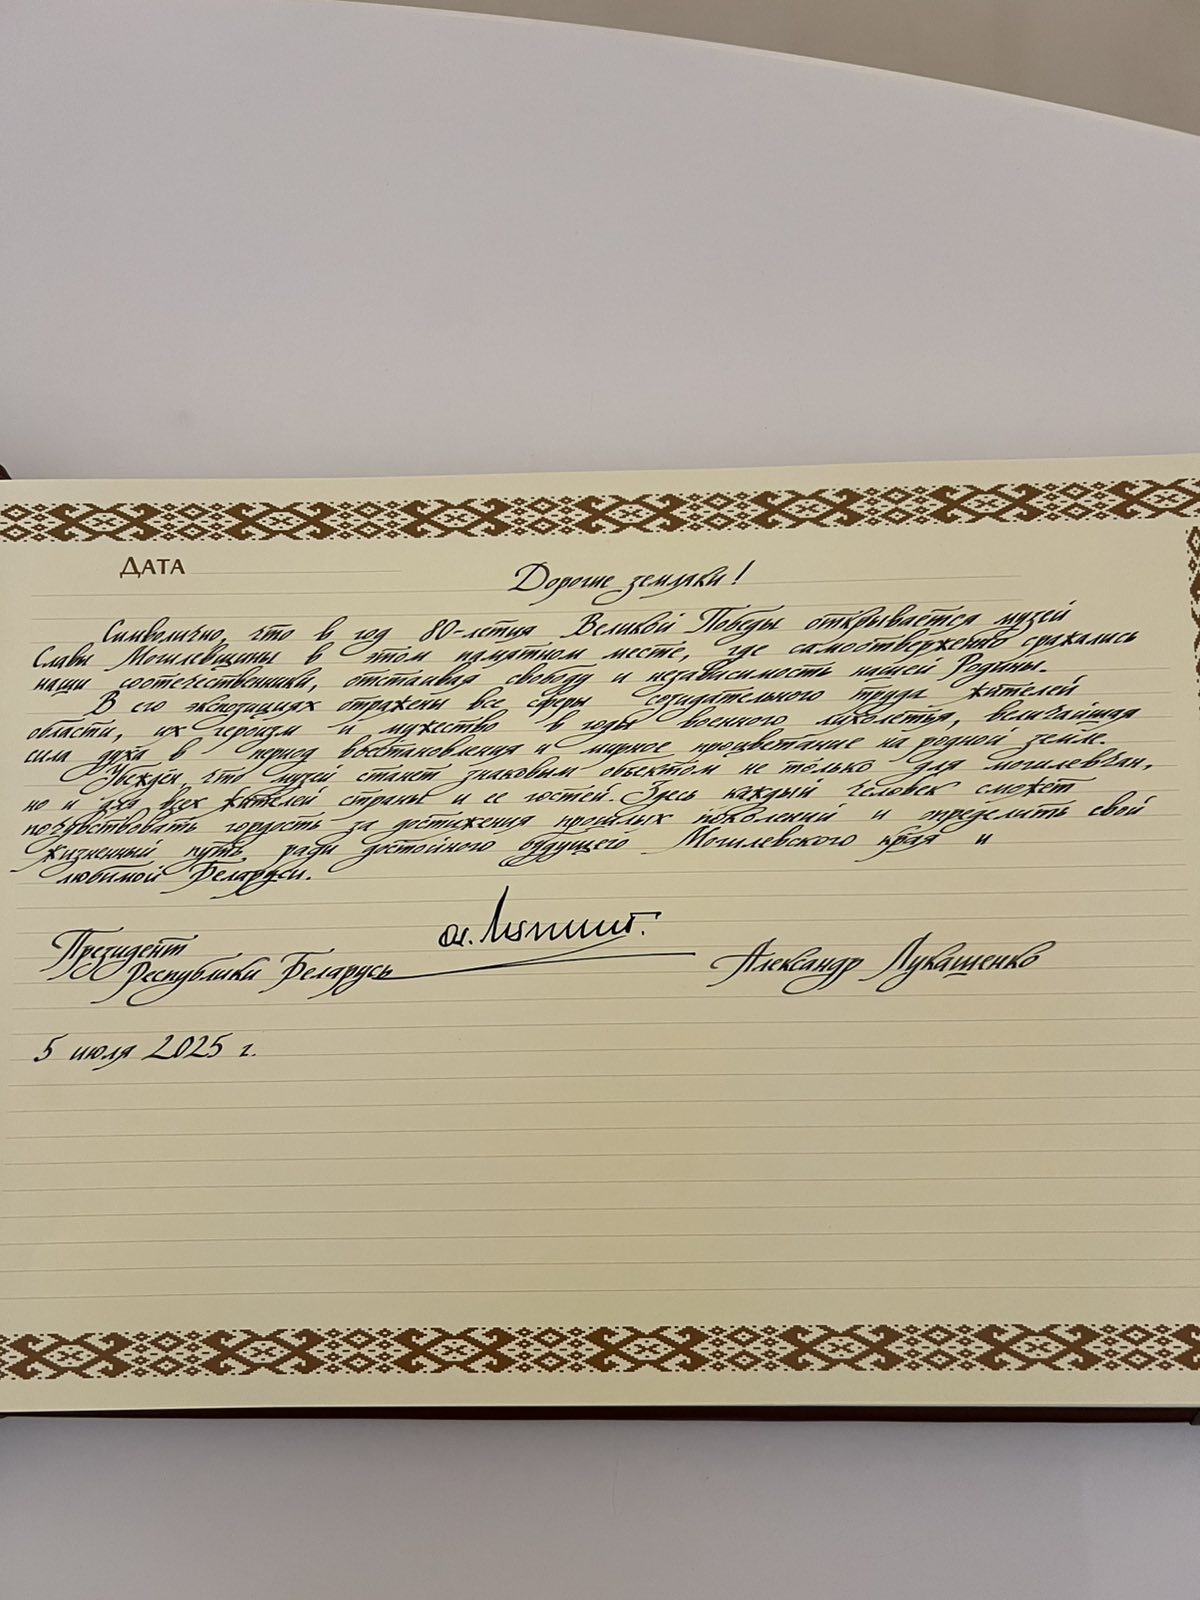 ДАТА
Дорогие земляки!
Символично, что в год 80-летия Великой Победы открывается музей
Славы Могилевщины в этом памятном месте, где самоотверженно сражались
наши соотечественники, отстаивая свободу и независимость нашей Родины.
В его экспозициях отражены все сферы созидательного труда жителей
области, их героизм и мужество в годы военного лихолетья, величайшая
сила духа в период восстановления и мирное процветание на родной земле.
Убежден, что музей станет знаковым объектом не только для могилевчан,
но и для всех жителей страны и ее гостей. Здесь каждый человек сможет
почувствовать гордость за достижения прошлых поколений и определить свой
жизненный путь ради достойного будущего Могилевского края и
любимой Беларуси.
Президент
Республики Беларусь Александр Лукашенко
5 июля 2025 г.